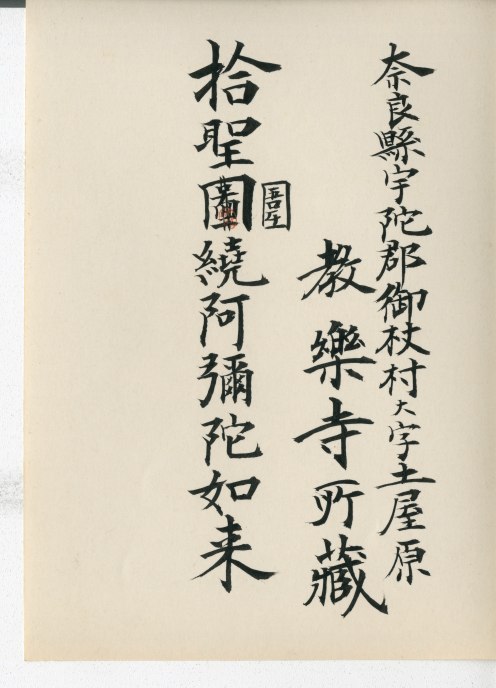 奈良縣宇陀郡御杖村大字土屋原
教樂寺所藏
拾聖圍繞阿彌陀如来